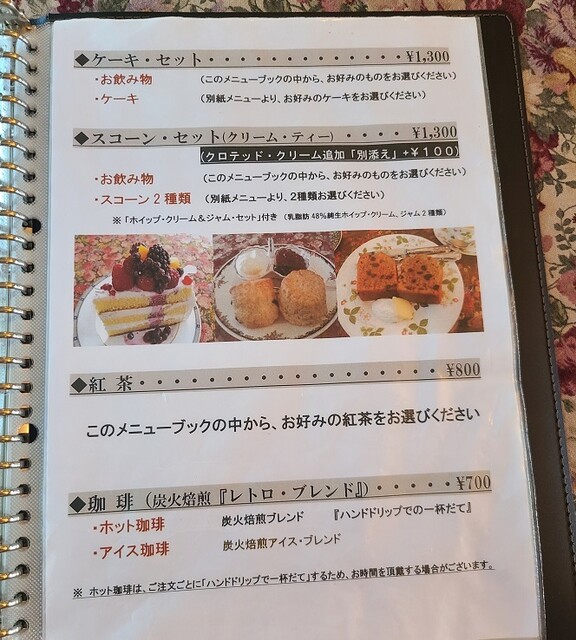 ◆ケーキ・セット・・・・・・・・・・・・・・¥1,300
・お飲み物 （このメニューブックの中から、お好みのものをお選びください）
・ケーキ （別紙メニューより、お好みのケーキをお選びください）
◆スコーン・セット(クリーム・ティー) ・・・・ ¥1,300
(クロテッド・クリーム追加「別添え」+¥１００)
・お飲み物 （このメニューブックの中から、お好みのものをお選びください）
・スコーン２種類 （別紙メニューより、２種類お選びください）
※「ホイップ・クリーム＆ジャム・セット」付き （乳脂肪48％純生ホイップ・クリーム、ジャム２種類）
◆紅 茶・・・・・・・・・・・・・・・・・・¥800
このメニューブックの中から、お好みの紅茶をお選びください
◆珈 琲（炭火焙煎『レトロ・ブレンド』）・・・・・¥700
・ホット珈琲 炭火焙煎ブレンド 『ハンドドリップでの一杯だて』
・アイス珈琲 炭火焙煎アイス・ブレンド
※ ホット珈琲は、ご注文ごとに「ハンドドリップで一杯だて」するため、お時間を頂戴する場合がございます。